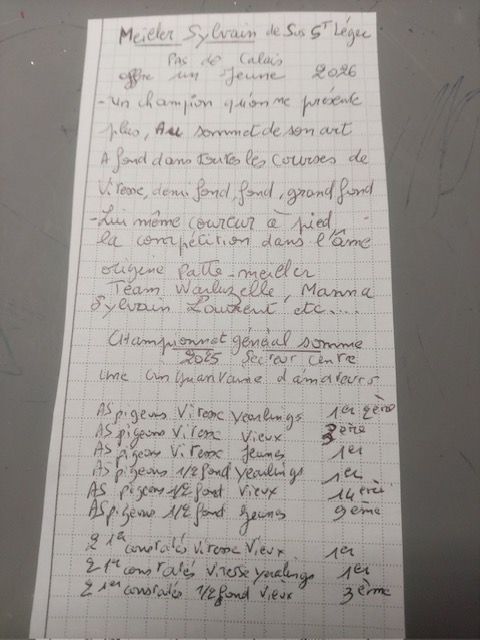 Meiller Sylvain de Sus St Léger
Pas de Calais
offre un Jeune 2026
- Un champion qu'on ne présente
plus, Au sommet de son art
A fond dans toutes les courses de
Vitesse, demi fond, fond, grand fond
- Lui même coureur à pied,
la compétition dans l'âme
origine Patte-meiller
Team Warluzelle, Manna
Sylvain Laurent etc....
Championnat général somme
2025 Secteur Centre
une cinquantaine d'amateurs
AS pigeons Vitesse Yearlings 1er 2ème
AS pigeons Vitesse Vieux 3ème
AS pigeons Vitesse Jeunes 1er
AS pigeons 1/2 fond Yearlings 1er
AS pigeons 1/2 fond Vieux 14ème
AS pigeons 1/2 fond Jeunes 9ème
2 1er constatés Vitesse Vieux 1er
2 1er constatés Vitesse Yearlings 1er
2 1er constatés 1/2 fond Vieux 3ème